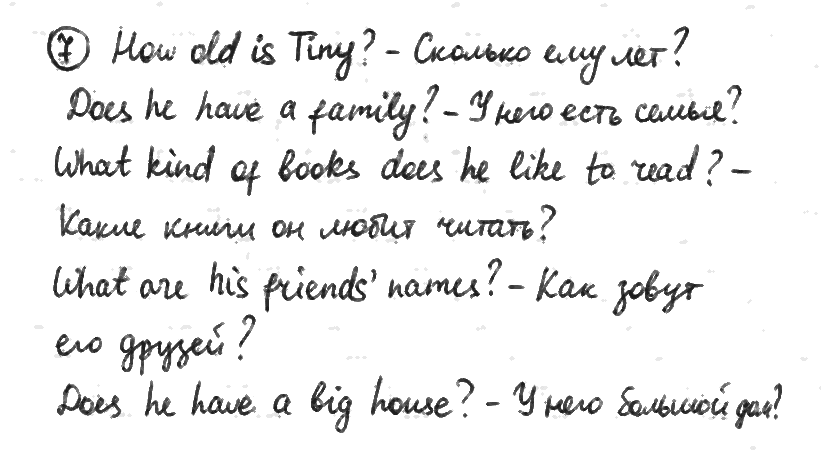 7 How old is Tiny? – Сколько ему лет?
Does he have a family? – У него есть семья?
What kind of books does he like to read? –
Какие книги он любит читать?
What are his friends' names? – Как зовут
его друзей?
Does he have a big house? – У него большой дом?